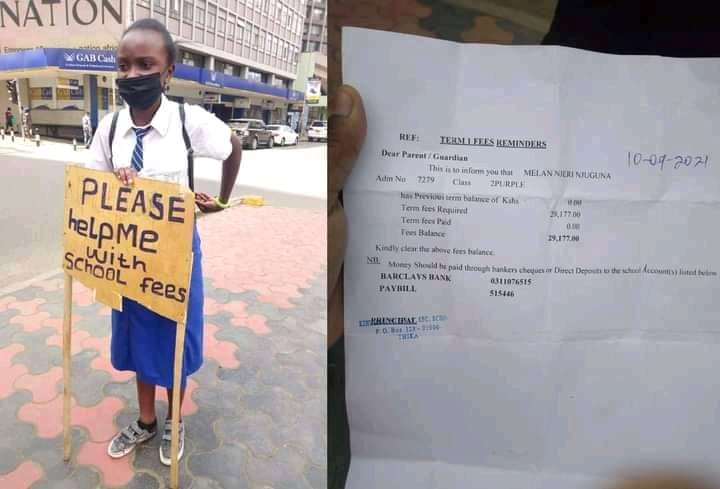 NATION
GAB Cash
PLEASE
helpME
with
SCHOOL fees
REF: TERM 1 FEES REMINDERS
10-09-2021
Dear Parent / Guardian
This is to inform you that MELAN NJERI NJUGUNA
Adm No 7279 Class 2PURPLE
has Previous term balance of Kshs 0.00
Term fees Required 29,177.00
Term fees Paid 0.00
Fees Balance 29,177.00
Kindly clear the above fees balance.
NB: Money Should be paid through bankers cheques or Direct Deposits to the school Account(s) listed below
BARCLAYS BANK 0311076515
PAYBILL 515446
PRINCIPAL
P. O. Box
THIKA